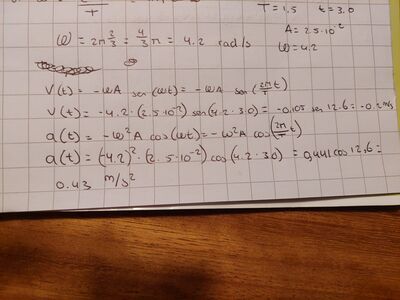 T
T = 1,5 t = 3.0
A = 2.5·10⁻²
ω = 4.2
ω = 2π 2/3 = 4/3 π = 4.2 rad/s
v(t) = -ωA sen(ωt) = -ωA sen(2π/T t)
v(t) = -4.2·(2.5·10⁻²) sen(4.2·3.0) = -0.105 sen 12.6 = -0.2 m/s
a(t) = -ω²A cos(ωt) = -ω²A cos(2π/T t)
a(t) = (-4.2)²·(2.5·10⁻²) cos(4.2·3.0) = 0,441 cos 12,6 =
0.43 m/s²